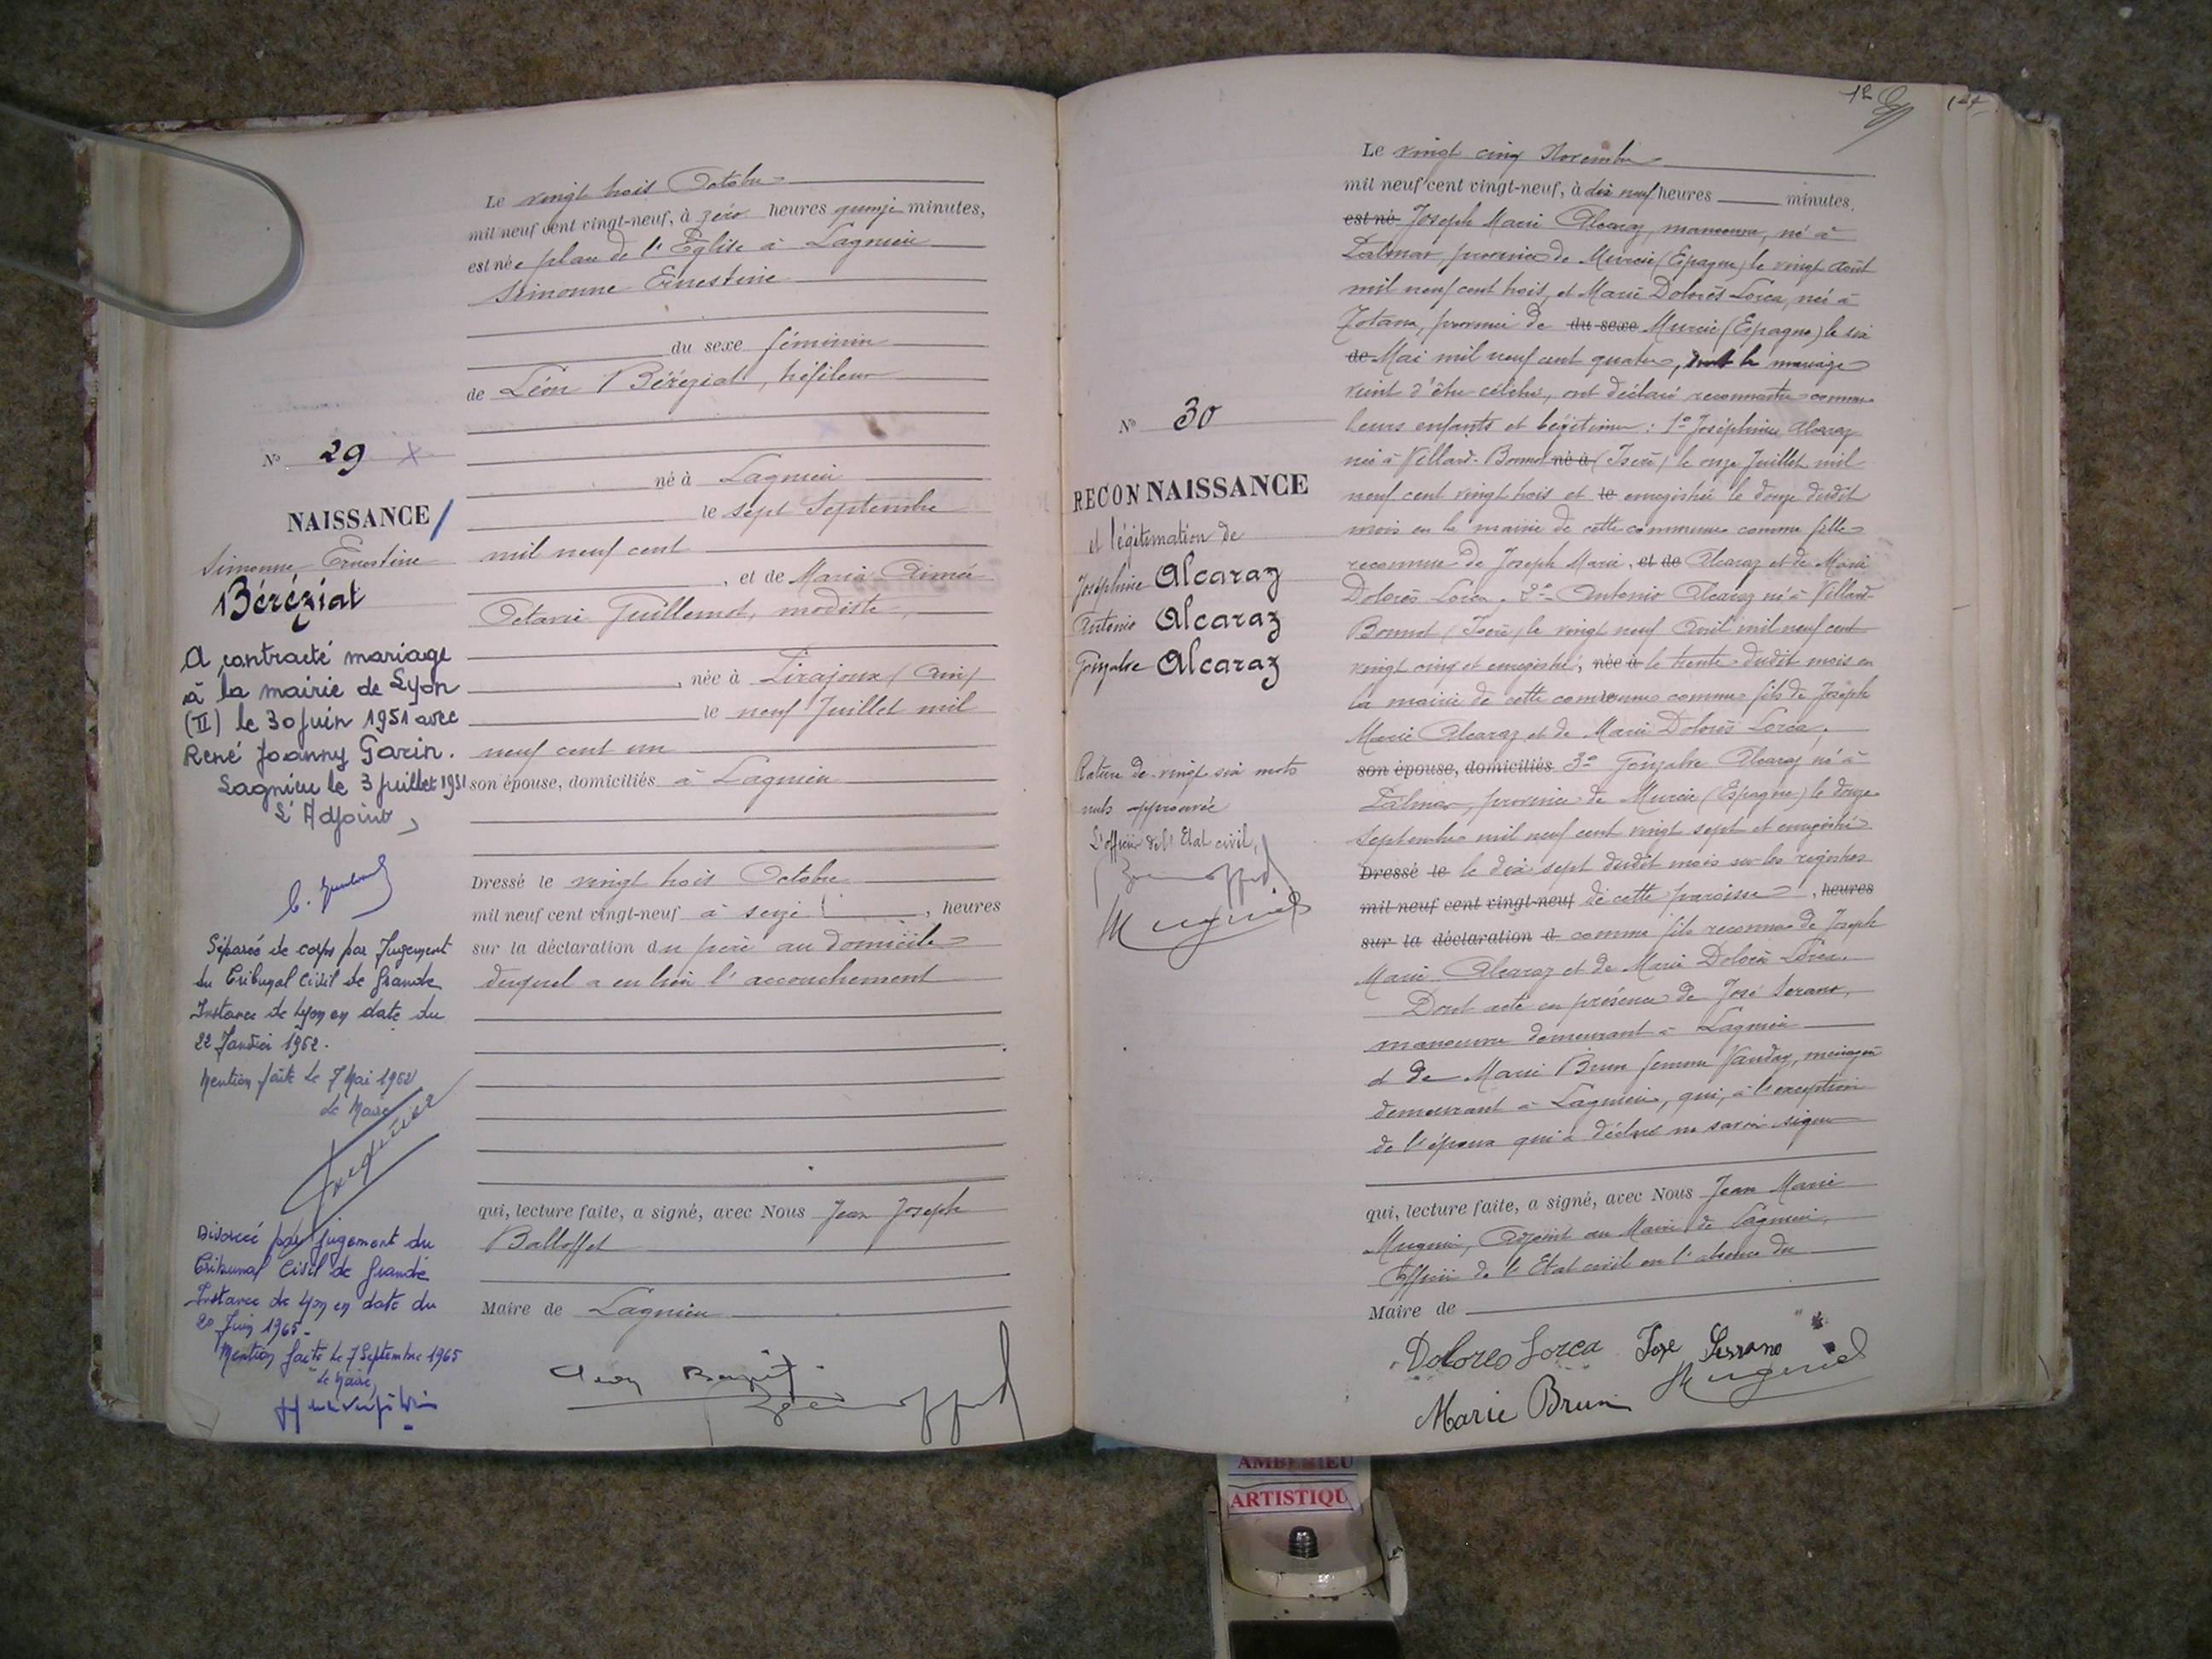 Le vingt trois Octobre
mil neuf cent vingt-neuf, à zéro heures quinze minutes,
est née place de l'Eglise à Lagnieu
Simonne Ernestine
du sexe féminin
de Léon Béréziat, tréfileur
né à Lagnieu
le sept Septembre
mil neuf cent
, et de Maria Aimée
Octavie Guillemot, modiste,
, née à Lirajoux (Ain)
le neuf Juillet mil
neuf cent un
son épouse, domiciliés à Lagnieu
Dressé le vingt trois Octobre
mil neuf cent vingt-neuf à seize , heures
sur la déclaration du père au domicile
duquel a eu lieu l'accouchement
qui, lecture faite, a signé, avec Nous Jean Joseph
Balloffet
Maire de Lagnieu
N° 29
NAISSANCE
Simonne Ernestine
Béréziat
A contracté mariage
à la mairie de Lyon
(II) le 30 Juin 1951 avec
René Joanny Garin.
Lagnieu le 3 Juillet 1951
L'Adjoint,
Séparés de corps par Jugement
du Tribunal Civil de Grande
Instance de Lyon en date du
22 Janvier 1962.
Mention faite le 7 Mai 1962
Le Maire
Divorcé par jugement du
Tribunal Civil de Grande
Instance de Lyon en date du
20 Juin 1965.
Mention faite le 7 Septembre 1965
Le Maire,
12
124
Le vingt cinq Novembre
mil neuf cent vingt-neuf, à dix neuf heures minutes.
est né Joseph Marie Alcaraz, manoeuvre, né à
Palmar, province de Murcie (Espagne) le vingt Août
mil neuf cent trois, et Marie Dolorès Lorca, née à
Totana, province de du sexe Murcie (Espagne) le six
de Mai mil neuf cent quatre, dont le mariage
vient d'être célébré, ont déclaré reconnaitre comme
leurs enfants et légitimer : 1° Joséphine Alcaraz
née à Villard-Bonnot né à (Isère) le onze Juillet mil
neuf cent vingt trois et le enregistrée le douze dudit
mois en la mairie de cette commune comme fille
reconnue de Joseph Marie, et de Alcaraz et de Marie
Dolorès Lorca. 2° Antonio Alcaraz né à Villard-
Bonnot (Isère) le vingt neuf Avril mil neuf cent
vingt cinq et enregistré, née à le trente dudit mois en
la mairie de cette commune comme fils de Joseph
Marie Alcaraz et de Marie Dolorès Lorca.
son épouse, domiciliés 3° Gonzalve Alcaraz né à
Palmar, province de Murcie (Espagne) le douze
Septembre mil neuf cent vingt sept et enregistré
Dressé le le dix sept dudit mois sur les registres
mil neuf cent vingt-neuf de cette paroisse , heures
sur la déclaration d comme fils reconnu de Joseph
Marie Alcaraz et de Marie Dolorès Lorca.
Dont acte en présence de José Serano,
manoeuvre demeurant à Lagnieu
et de Marie Brun femme Vauday, ménagère
demeurant à Lagnieu, qui, à l'exception
de l'époux qui a déclaré ne savoir signer
qui, lecture faite, a signé, avec Nous Jean Marie
Mugnier, Adjoint au Maire de Lagnieu,
Officier de l'Etat civil en l'absence du
Maire de
Dolores Lorca Jose Serrano
Marie Brun Mugnier
N° 30
RECONNAISSANCE
et légitimation de
Joséphine Alcaraz
Antonio Alcaraz
Gonzalve Alcaraz
Rature de vingt six mots
nuls approuvée
L'officier de l'Etat civil,
Mugnier
AMBERIEU
ARTISTIQU